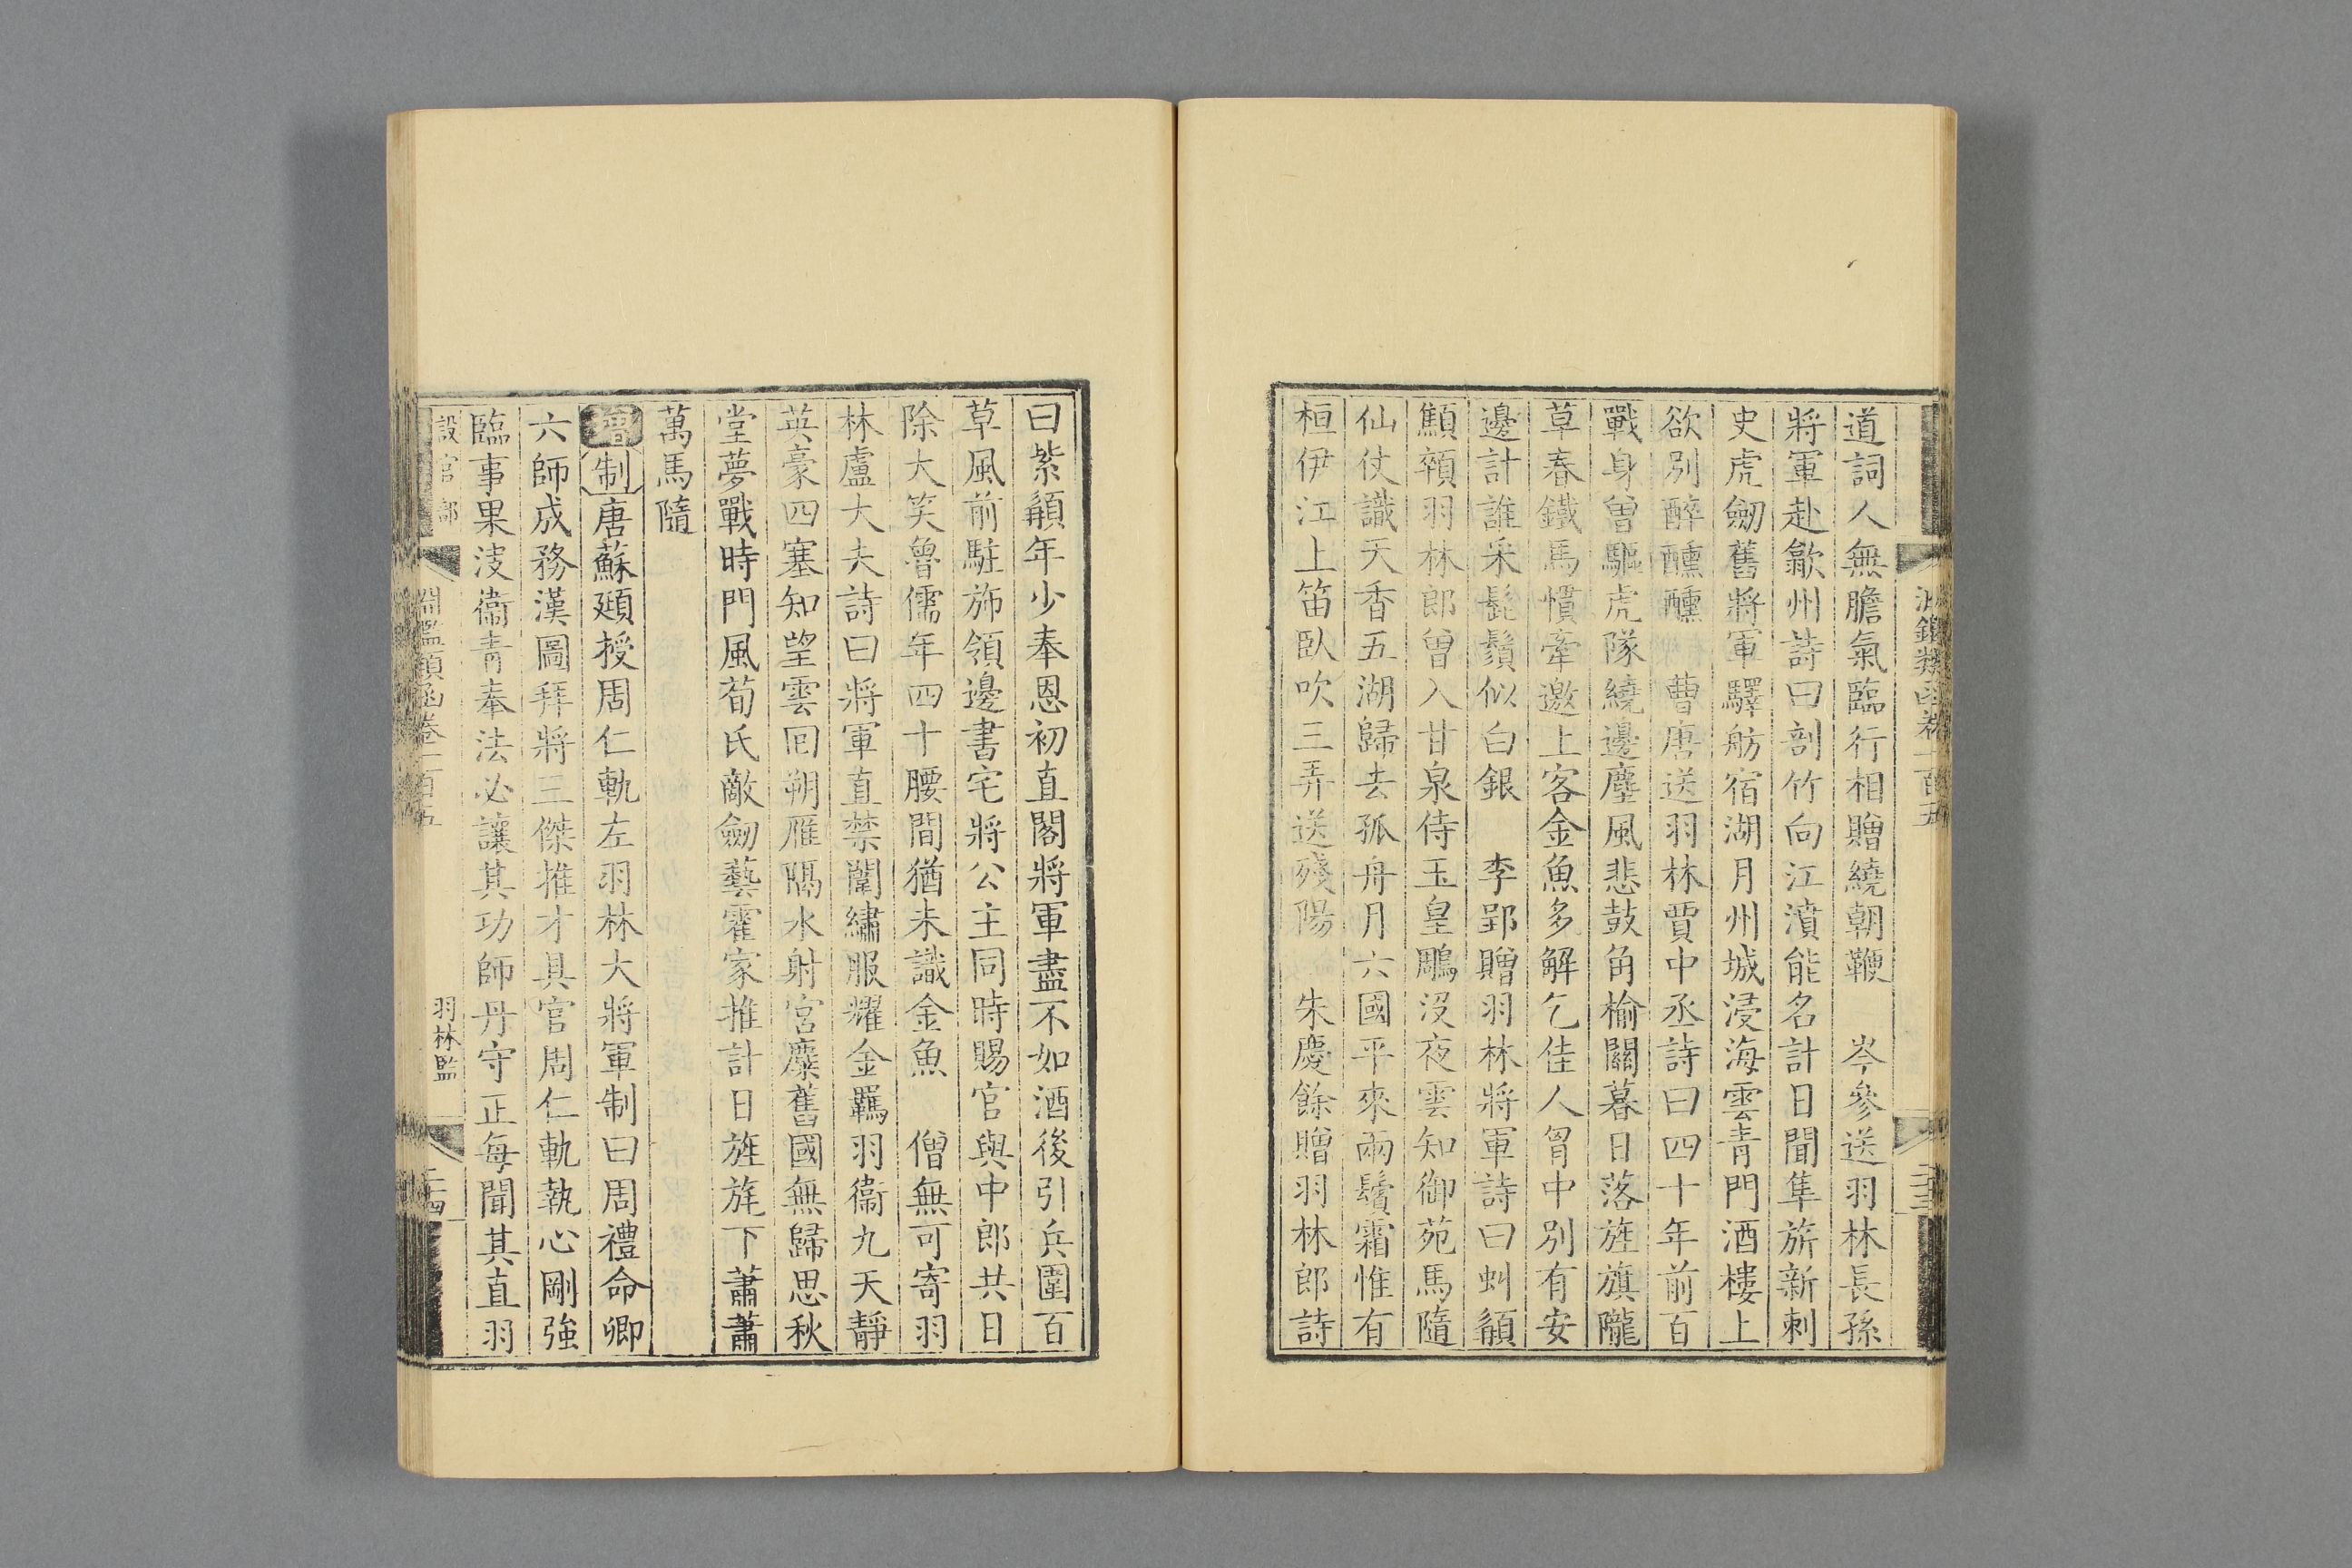 淵鑑類函卷一百五
二十三
道詞人無膽氣臨行相贈繞朝鞭　岑參送羽林長孫
將軍赴歙州詩曰剖竹向江濆能名計日聞隼旂新刺
史虎劒舊將軍驛舫宿湖月州城浸海雲青門酒樓上
欲別醉醺醺　曹唐送羽林賈中丞詩曰四十年前百
戰身曾驅虎隊繞邊塵風悲鼓角榆關暮日落旌旗隴
草春鐵馬慣牽邀上客金魚多解乞佳人胷中別有安
邊計誰采髭鬚似白銀　李郢贈羽林將軍詩曰虯鬚
顦顇羽林郎曾入甘泉侍玉皇鵰沒夜雲知御苑馬隨
仙仗識天香五湖歸去孤舟月六國平來兩鬢霜惟有
桓伊江上笛臥吹三弄送殘陽　朱慶餘贈羽林郎詩
曰紫𩓣年少奉恩初直閣將軍盡不如酒後引兵圍百
草風前駐斾領邊書宅將公主同時賜官與中郎共日
除大笑魯儒年四十腰間猶未識金魚　僧無可寄羽
林盧大夫詩曰將軍直禁闈繡服耀金羈羽衞九天靜
英豪四塞知望雲囘朔雁隔水射宮麋舊國無歸思秋
堂夢戰時門風荀氏敵劒藝霍家推計日旌旄下蕭蕭
萬馬隨
增制唐蘇頲授周仁軌左羽林大將軍制曰周禮命卿
六師成務漢圖拜將三傑推才具官周仁軌執心剛強
臨事果決衞青奉法必讓其功師丹守正每聞其直羽
設官部
淵鑑類函卷一百五
羽林監
二十四